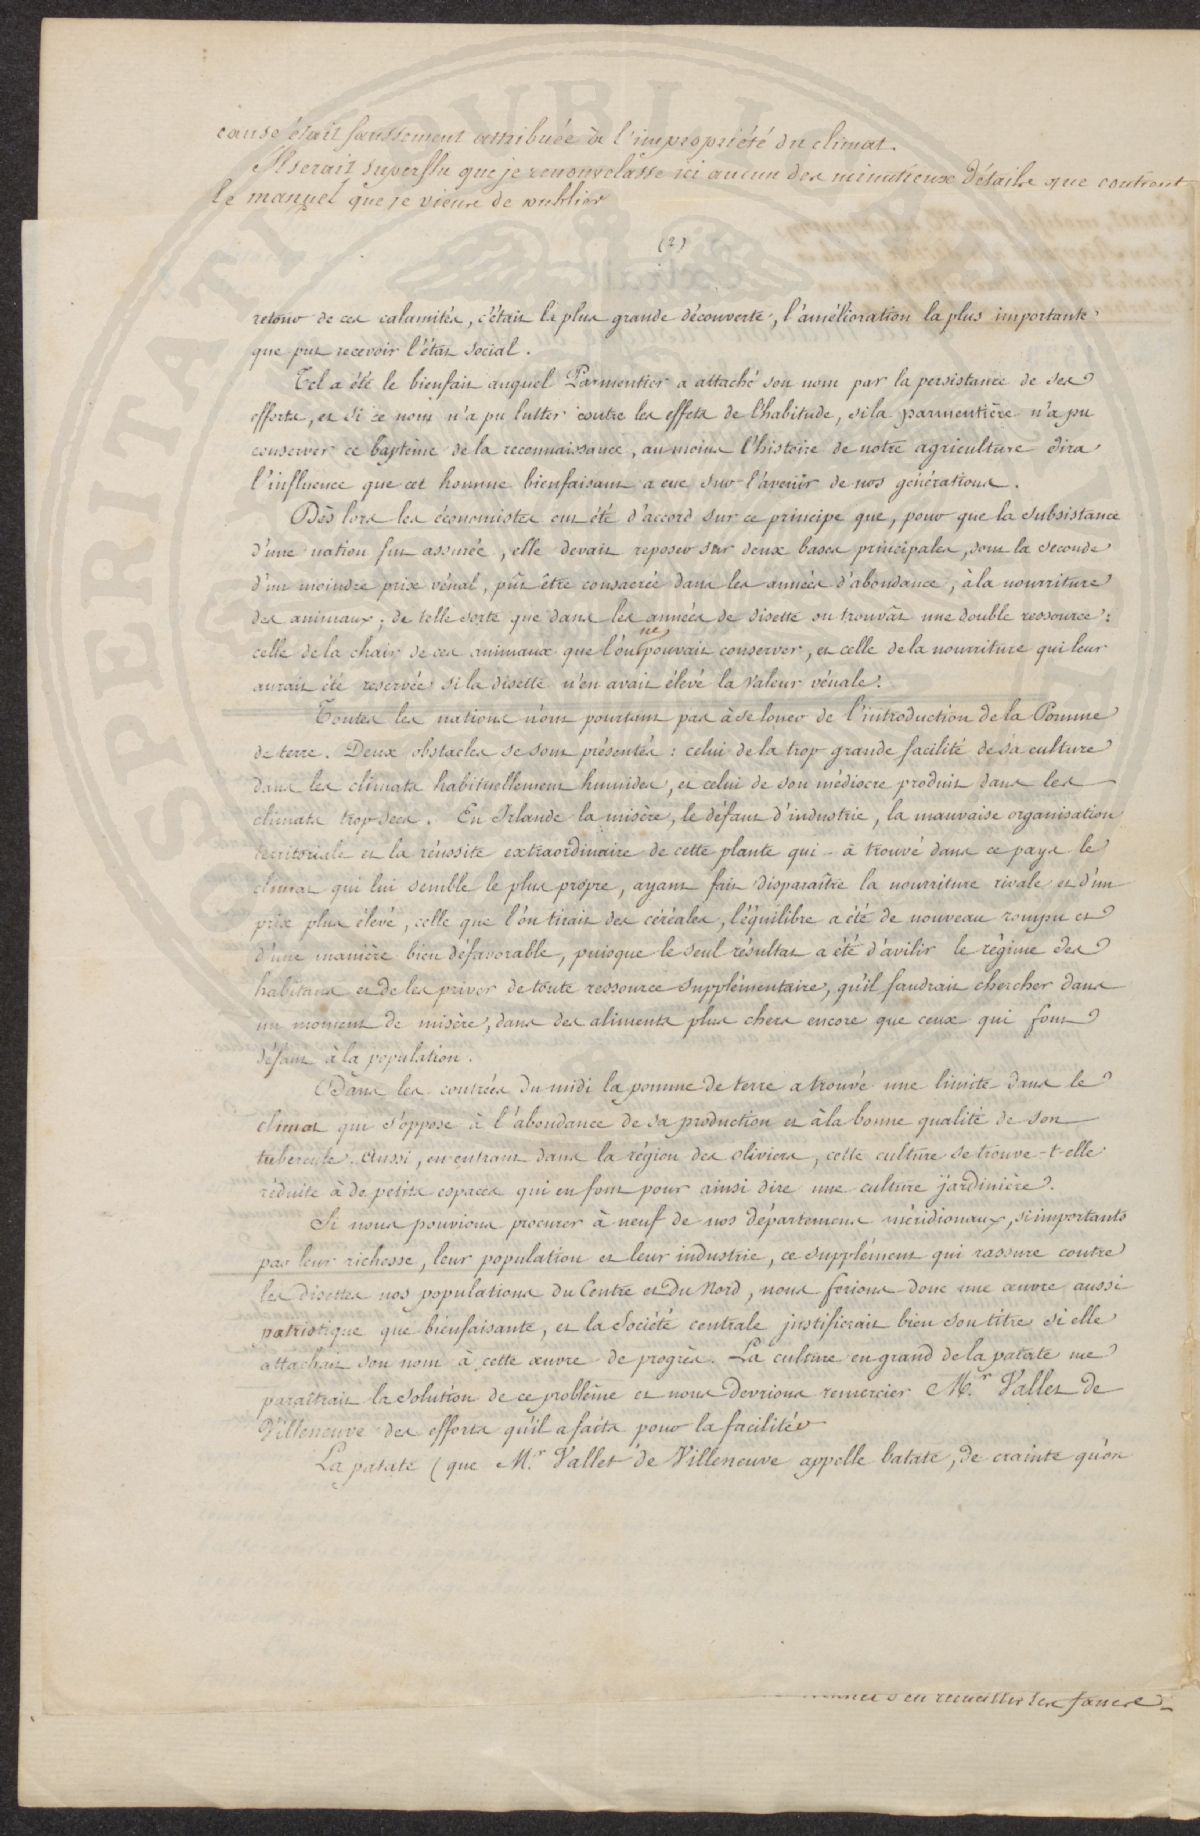 cause était faussement attribuée à l'impropriété du climat.
Il serait superflu que je renouvelasse ici aucun des minutieux détails que contient
le manuel que je viens de publier
(2)
retour de ces calamités, c'était la plus grande découverte, l'amélioration la plus importante
que put recevoir l'état social.
Tel a été le bienfait auquel Parmentier a attaché son nom par la persistance de ses
efforts, et si ce nom n'a pu lutter contre les effets de l'habitude, si la parmentière n'a pu
conserver ce baptême de la reconnaissance, au moins l'histoire de notre agriculture dira
l'influence que cet homme bienfaisant a eue sur l'avenir de nos générations.
Dès lors les économistes ont été d'accord sur ce principe que, pour que la subsistance
d'une nation fut assurée, elle devait reposer sur deux bases principales, dont la seconde
d'un moindre prix vénal, pût être consacrée dans les années d'abondance, à la nourriture
des animaux; de telle sorte que dans les années de disette on trouvât une double ressource:
celle de la chair de ces animaux que l'on ne pouvait conserver, et celle de la nourriture qui leur
aurait été reservée si la disette n'en avait élevé la valeur vénale.
Toutes les nations n'ont pourtant pas à se louer de l'introduction de la Pomme
de terre. Deux obstacles se sont présentés: celui de la trop grande facilité de sa culture
dans les climats habituellement humides, et celui de son médiocre produit dans les
climats trop secs. En Irlande la misère, le défaut d'industrie, la mauvaise organisation
territoriale et la réussite extraordinaire de cette plante qui a trouvé dans ce pays le
climat qui lui semble le plus propre, ayant fait disparaître la nourriture rivale et d'un
prix plus élevé, celle que l'on tirait des céréales, l'équilibre a été de nouveau rompu et
d'une manière bien défavorable, puisque le seul résultat a été d'avilir le régime des
habitans et de les priver de toute ressource supplémentaire, qu'il faudrait chercher dans
un moment de misère, dans des aliments plus chers encore que ceux qui font
défaut à la population.
Dans les contrées du midi la pomme de terre a trouvé une limite dans le
climat qui s'oppose à l'abondance de sa production et à la bonne qualité de son
tubercule. Aussi, en entrant dans la région des oliviers, cette culture se trouve-t-elle
réduite à de petits espaces qui en font pour ainsi dire une culture jardinière.
Si nous pouvions procurer à neuf de nos départemens méridionaux, si importants
par leur richesse, leur population et leur industrie, ce supplément qui rassure contre
les disettes nos populations du Centre et du Nord, nous ferions donc une œuvre aussi
patriotique que bienfaisante, et la Société centrale justifierait bien son titre si elle
attachait son nom à cette œuvre de progrès. La culture en grand de la patate me
paraîtrait la solution de ce problème et nous devrions remercier Mr. Vallet de
Villeneuve des efforts qu'il a faits pour la faciliter
La patate (que Mr. Vallet de Villeneuve appelle batate, de crainte qu'on
d'en recueillir les fanes
SPERITATI PVBLI